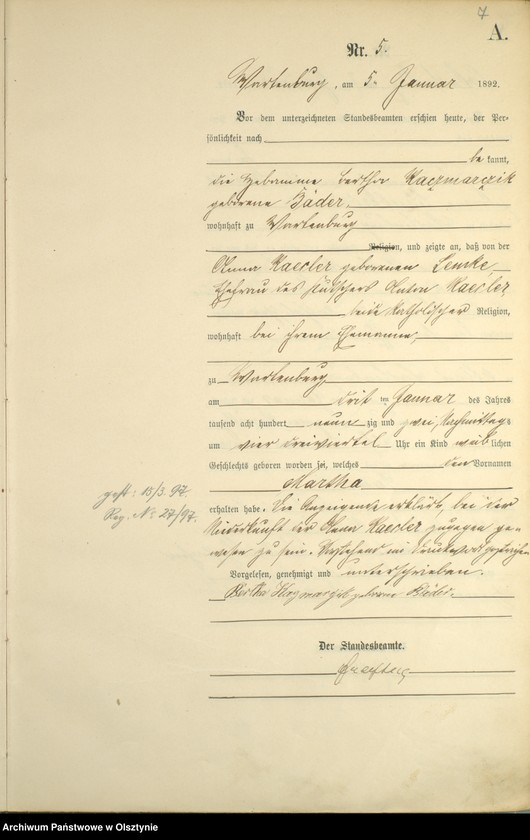 7
A.
Nr. 5.
Wartenburg, am 5. Januar 1892.
Vor dem unterzeichneten Standesbeamten erschien heute, der Per-
sönlichkeit nach
be kannt,
die Hebamme Bertha Kaczmarczik
geborene Bäder,
wohnhaft zu Wartenburg
Religion, und zeigte an, daß von der
Anna Kaesler geborenen Lemke
Ehefrau des Kutschers Anton Kaesler,
beide katholischer Religion,
wohnhaft bei ihrem Ehemanne,
zu Wartenburg
am drit ten Januar des Jahres
tausend acht hundert neun zig und zwei, Nachmittags
um vier dreiviertel Uhr ein Kind weib lichen
Geschlechts geboren worden sei, welches den Vornamen
Martha
erhalten habe. Die Anzeigende erklärte, bei der
Niederkunft der Anna Kaesler zugegen ge-
wesen zu sein. Vorstehend ein Druckwort gestrichen
Vorgelesen, genehmigt und unterschrieben.
Bertha Kaczmarczik geborene Bäder.
Der Standesbeamte.
gest: 13/3. 97.
Reg. No: 27/97.
Archiwum Państwowe w Olsztynie